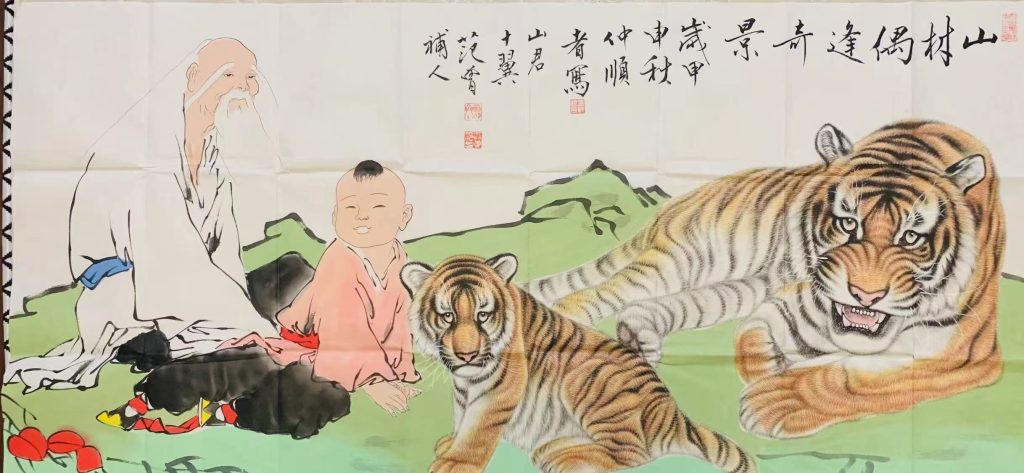 山林偶逢奇景
歲甲
申秋
仲順
者寫
山君
十翼
范曾
補人